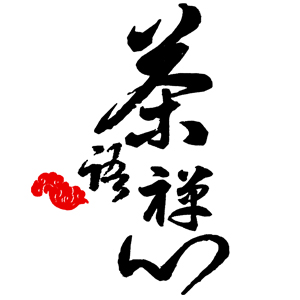 茶语禅心